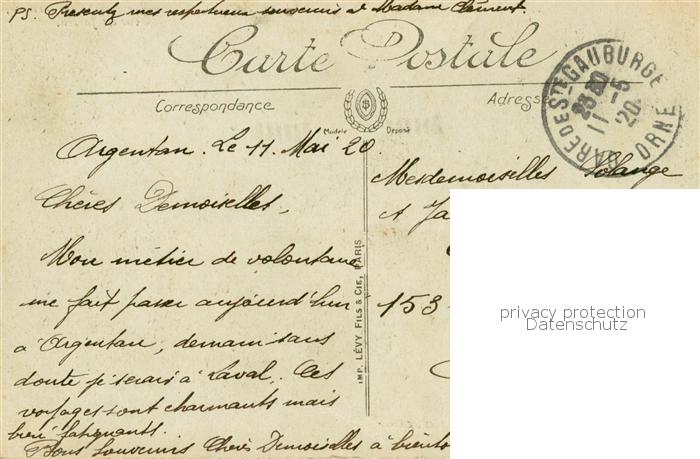 PS. Presentez mes respectueux souvenirs à Madame Clément.
Carte Postale
Correspondance
Adresse
Modèle Déposé
GARE DE STE GAUBURGE
23 20
11 - 5
20
ORNE
Argentan. Le 11 Mai 20.
Chères Demoiselles,
Mon métier de volontaire
me fait passer aujourd'hui
à Argentan, demain sans
doute je serais à Laval. Ces
voyages sont charmants mais
bien fatigants.
Bons souvenirs Chères Demoiselles à bientô
IMP. LÉVY FILS & CIE, PARIS
Mesdemoiselles Solange
et Ja
153
privacy protection
Datenschutz